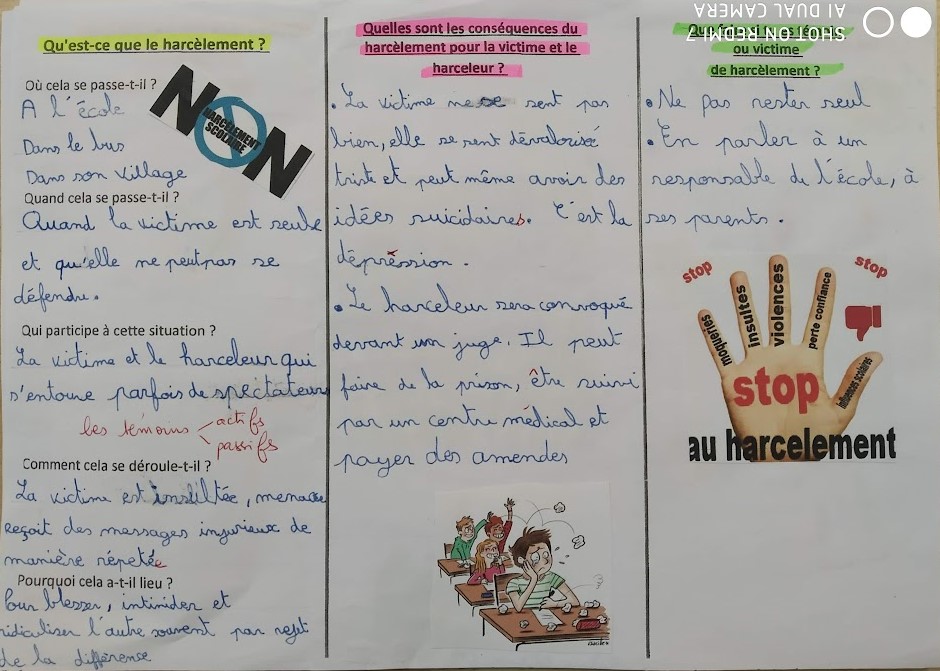 Qu'est-ce que le harcèlement ?
Où cela se passe-t-il ?
A l'école
Dans le bus
Dans son village
NON
HARCÈLEMENT
SCOLAIRE
Quand cela se passe-t-il ?
Quand la victime est seule
et qu'elle ne peut pas se
défendre.
Qui participe à cette situation ?
La victime et le harceleur qui
s'entoure parfois de spectateurs
les témoins
actifs
passifs
Comment cela se déroule-t-il ?
La victime est insultée, menacée
reçoit des messages injurieux de
manière répetée
Pourquoi cela a-t-il lieu ?
Pour blesser, intimider et
ridiculiser l'autre souvent par rejet
de la différence
Quelles sont les conséquences du
harcèlement pour la victime et le
harceleur ?
• La victime ne se sent pas
bien, elle se sent dévalorisé
triste et peut même avoir des
idées suicidaires. C'est la
dépression.
• Le harceleur sera convoqué
devant un juge. Il peut
faire de la prison, être suivi
par un centre médical et
payer des amendes
ou victime
de harcèlement ?
• Ne pas rester seul
• En parler à un
responsable de l'école, à
ses parents.
stop
stop
moqueries
insultes
violences
perte confiance
influences scolaires
stop
au harcelement
SHOT ON REDMI 7
AI DUAL CAMERA